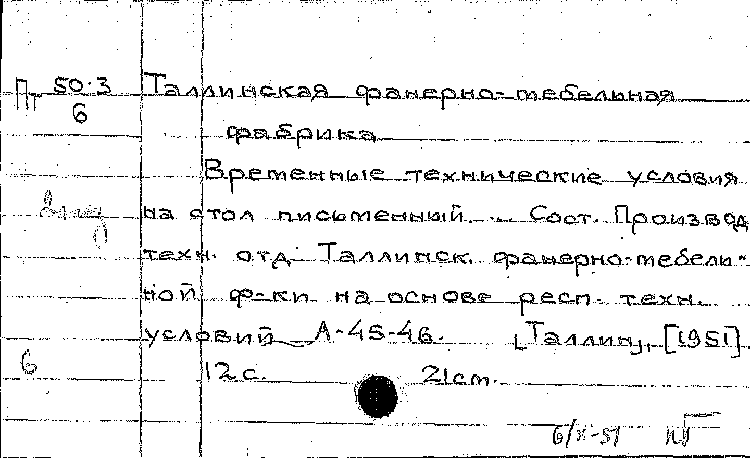 Пт 50.3 Таллинская фанерно-мебельная
6
фабрика
Временные технические условия
на стол письменный. – Сост. Производ
техн. отд. Таллинск. фанерно-мебель-
ной ф-ки на основе респ. техн.
условий А-45-46. [Таллин], [1951].
6
12 с. 21 cm.
6/XI-51